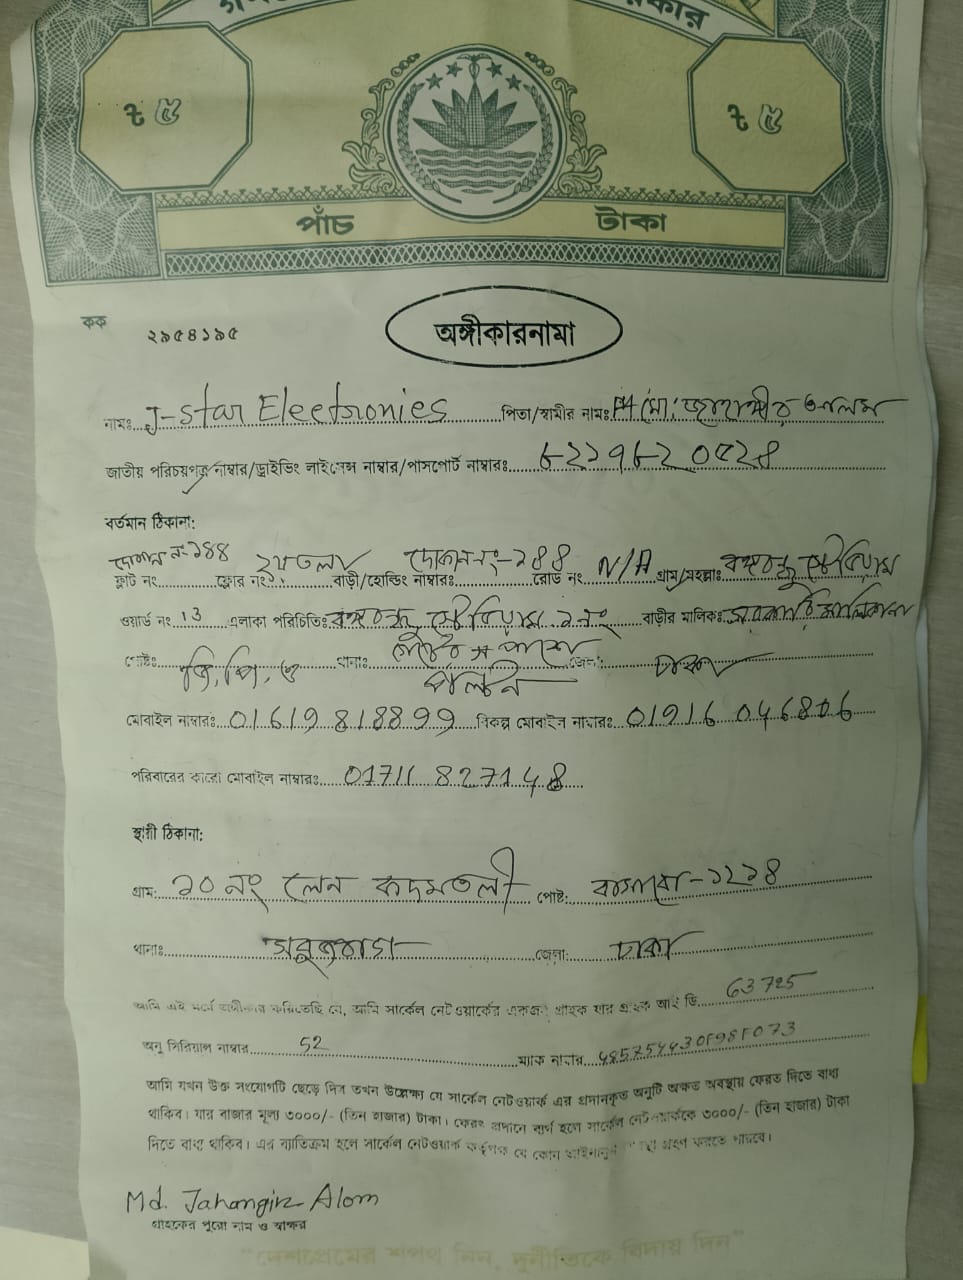 ৳ ৫ ৳ ৫
পাঁচ টাকা
কক ২৯৫৪১৯৫
অঙ্গীকারনামা
নামঃ J-Star Electronies পিতা/স্বামীর নামঃ মো: জাহাঙ্গীর আলম
জাতীয় পরিচয়পত্র নাম্বার/ড্রাইভিং লাইসেন্স নাম্বার/পাসপোর্ট নাম্বারঃ
বর্তমান ঠিকানা:
দোকান নং-১৪৪ ২য় তলা দোকান নং-১৪৪ N/A
ফ্লাট নং ফ্লোর নং বাড়ী/হোল্ডিং নাম্বারঃ রোড নং গ্রাম/মহল্লাঃ বঙ্গবন্ধু স্টেডিয়াম
ওয়ার্ড নং 13 এলাকা পরিচিতিঃ বঙ্গবন্ধু স্টেডিয়াম ১ নং বাড়ীর মালিকঃ সরকারি মালিকানা
গেইটের পাশে
পোষ্টঃ জি,পি,ও থানাঃ পল্টন জেলা: ঢাকা
মোবাইল নাম্বারঃ 01619 818899 বিকল্প মোবাইল নাম্বারঃ 01916 046806
পরিবারের কারো মোবাইল নাম্বারঃ 01711 827148
স্থায়ী ঠিকানা:
গ্রাম: ১০ নং লেন কদমতলী পোষ্ট: বাসাবো-১২১৪
থানাঃ সবুজবাগ জেলা: ঢাকা
আমি এই মর্মে অঙ্গীকার করিতেছি যে, আমি সার্কেল নেটওয়ার্কের একজন গ্রাহক যার গ্রাহক আই ডি 63725
অনু সিরিয়াল নাম্বার 52 ম্যাক নাম্বার
আমি যখন উক্ত সংযোগটি ছেড়ে দিব তখন উল্লেক্ষ্য যে সার্কেল নেটওয়ার্ক এর প্রদানকৃত অনুটি অক্ষত অবস্থায় ফেরত দিতে বাধ্য
থাকিব। যার বাজার মূল্য ৩০০০/- (তিন হাজার) টাকা। ফেরৎ প্রদানে ব্যর্থ হলে সার্কেল নেটওয়ার্ককে ৩০০০/- (তিন হাজার) টাকা
দিতে বাধ্য থাকিব। এর ব্যাতিক্রম হলে সার্কেল নেটওয়ার্ক কর্তৃপক্ষ যে কোন গ্রহণ করতে পারবে।
Md. Jahangir Alom
গ্রাহকের পুরো নাম ও স্বাক্ষর
"দেশপ্রেমের শপথ নিন, দুর্নীতিকে বিদায় দিন"